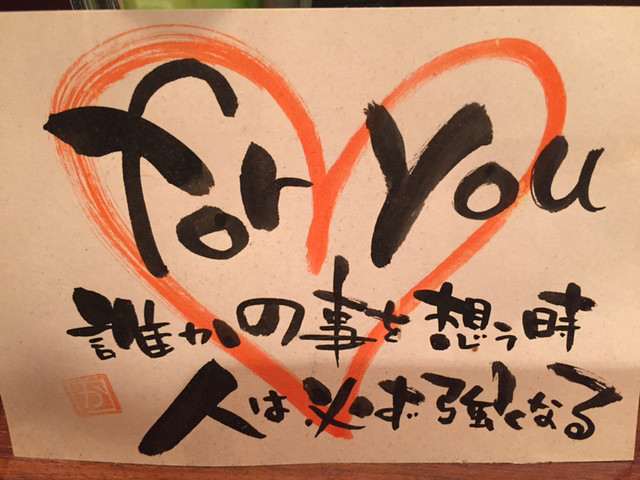 for you
誰かの事を想う時
人は必ず強くなる